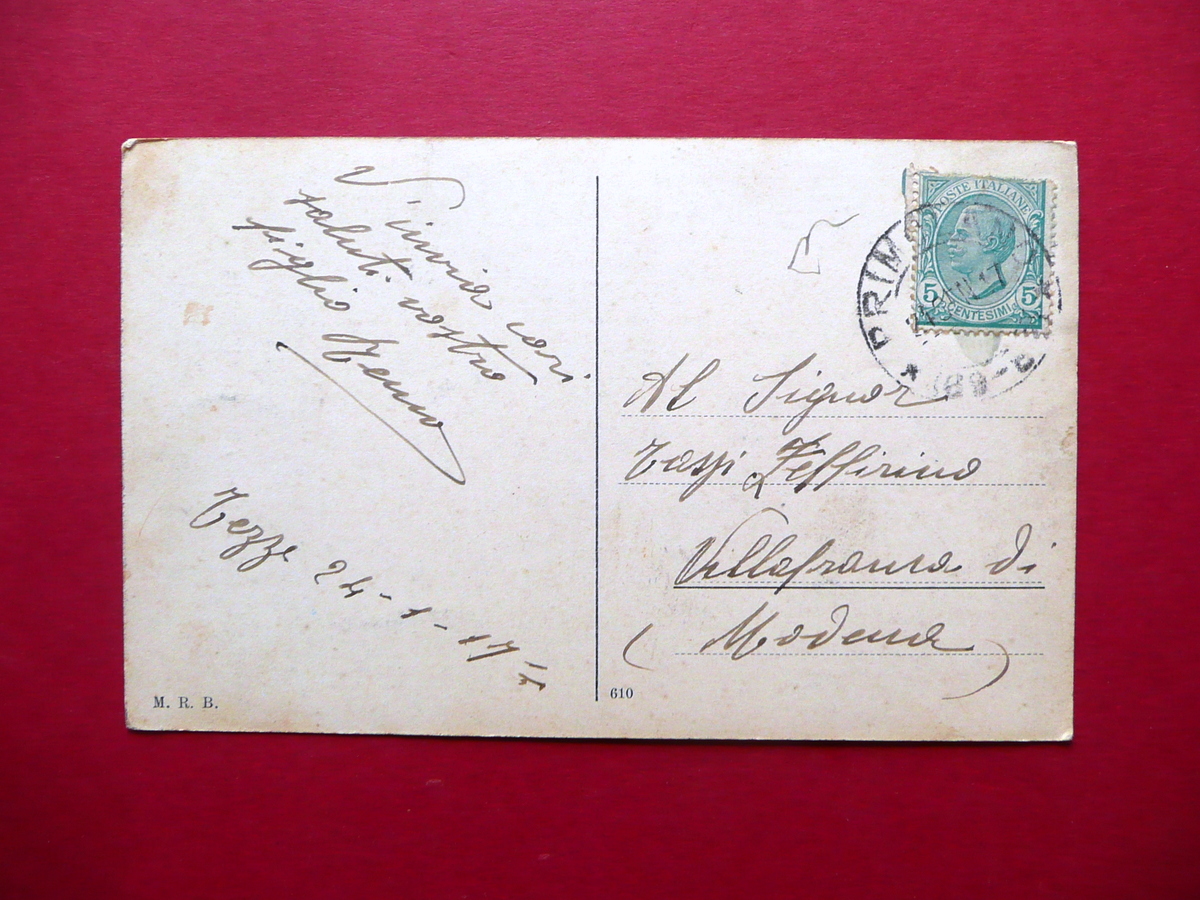 V'invia cari
saluti vostro
figlio Remo
Tezze 24-1-17
M. R. B.
610
POSTE ITALIANE
5 5
CENTESIMI
PRIM
Al Signor
Zeffirino
Villafranca di
(Modena)